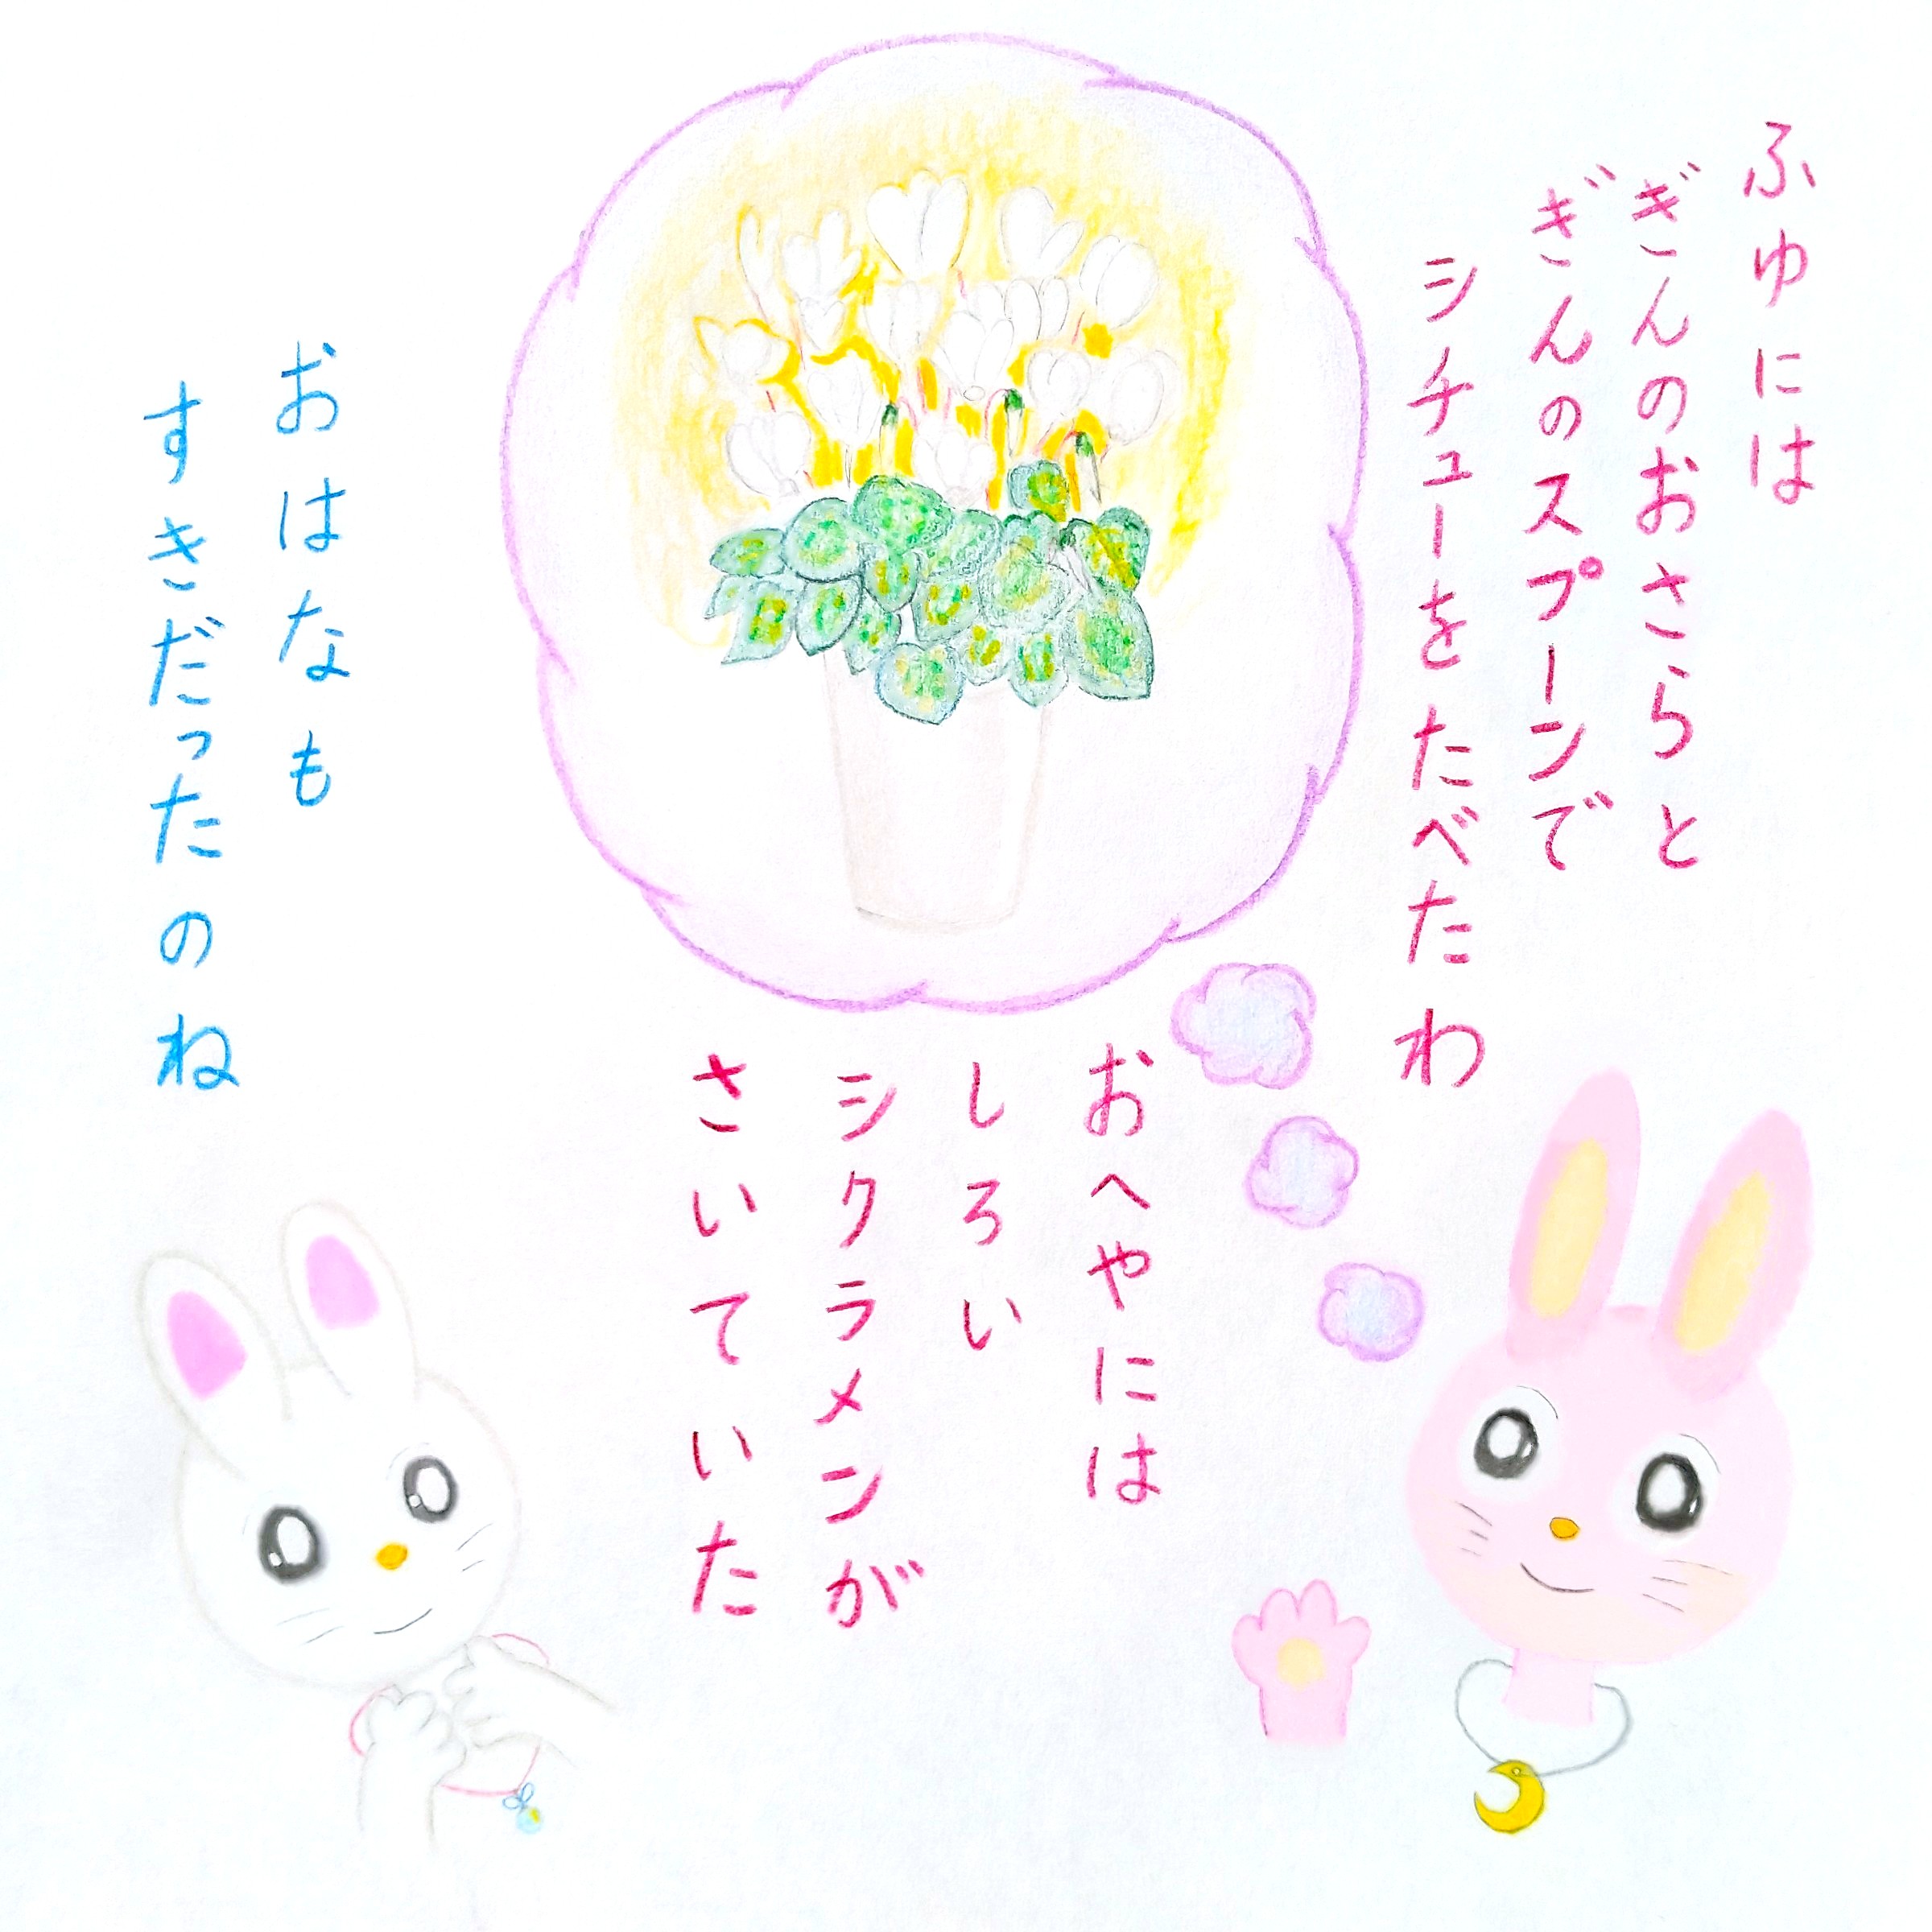 ふゆには
ぎんのおさらと
ぎんのスプーンで
シチューをたべたわ
おへやには
しろい
シクラメンが
さいていた
おはなも
すきだったのね